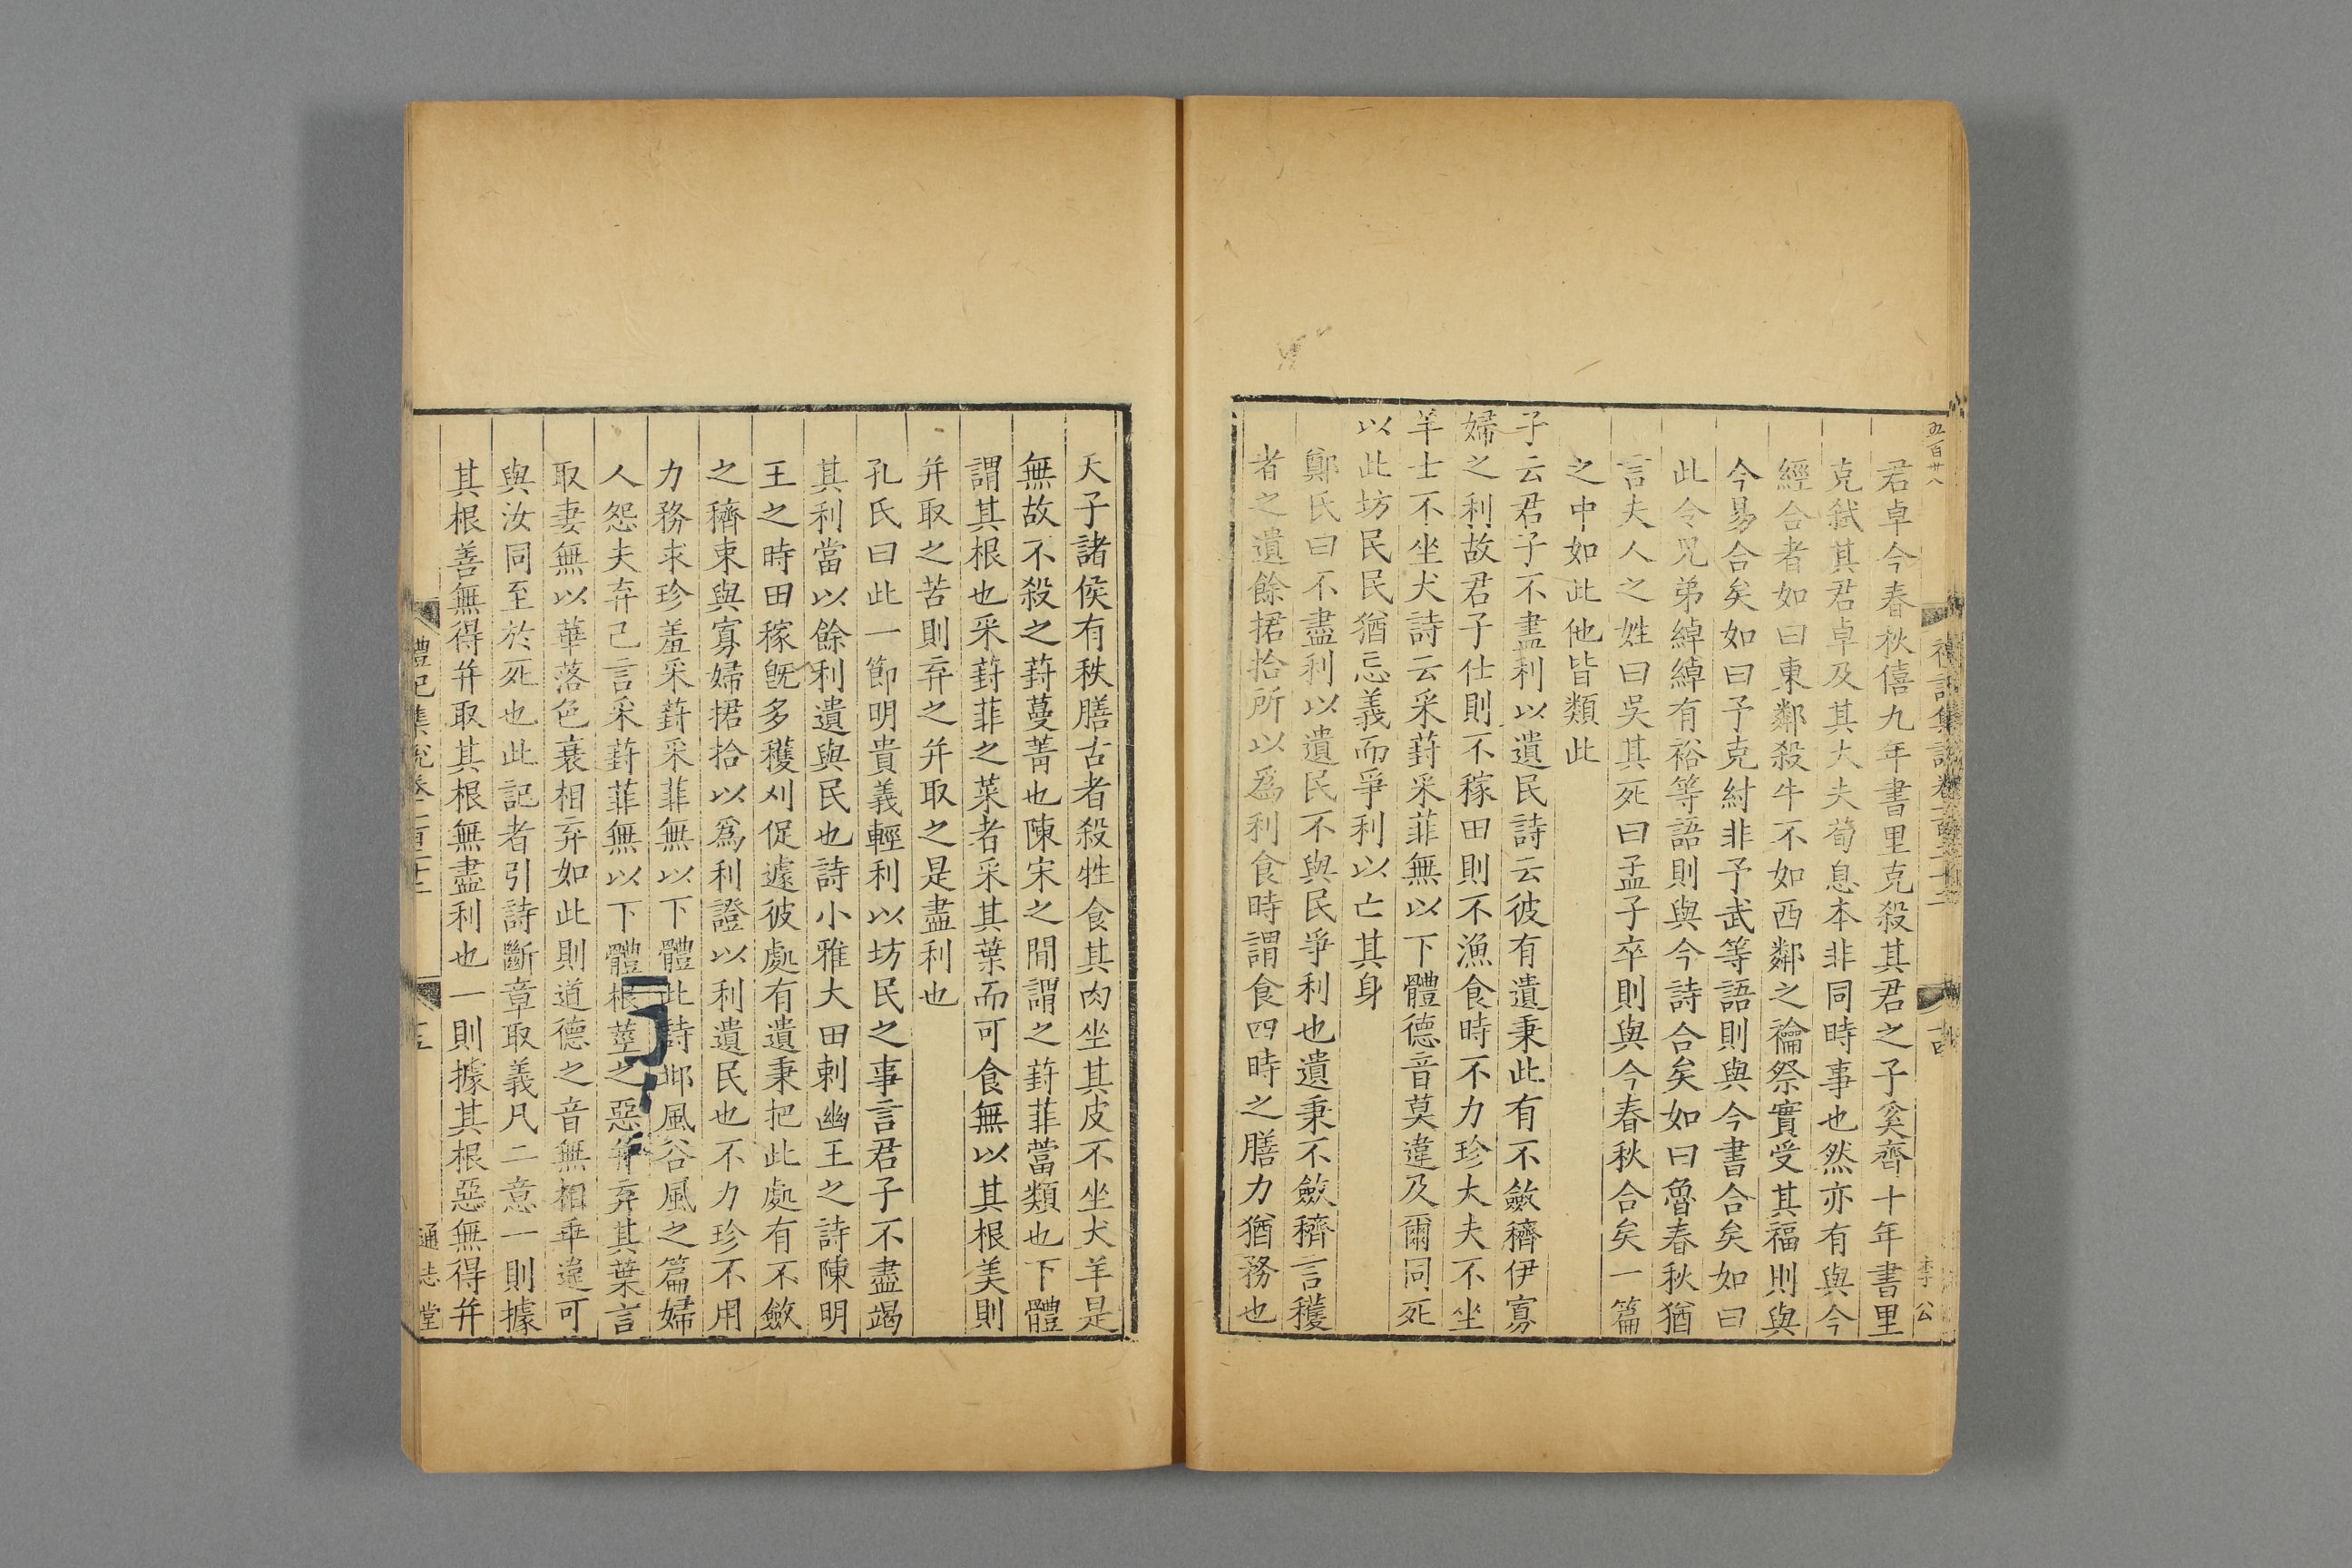 五百廿八
君卓今春秋僖九年書里克殺其君之子奚齊十年書里
克弑其君卓及其大夫荀息本非同時事也然亦有與今
經合者如曰東鄰殺牛不如西鄰之禴祭實受其福則與
今易合矣如曰予克紂非予武等語則與今書合矣如曰
此令兄弟綽綽有裕等語則與今詩合矣如曰魯春秋猶
言夫人之姓曰吳其死曰孟子卒則與今春秋合矣一篇
之中如此他皆類此
子云君子不盡利以遺民詩云彼有遺秉此有不斂穧伊寡
婦之利故君子仕則不稼田則不漁食時不力珍大夫不坐
羊士不坐犬詩云采葑采菲無以下體德音莫違及爾同死
以此坊民民猶忘義而爭利以亡其身
鄭氏曰不盡利以遺民不與民爭利也遺秉不斂穧言穫
者之遺餘捃拾所以爲利食時謂食四時之膳力猶務也
天子諸侯有秩膳古者殺牲食其肉坐其皮不坐犬羊是
無故不殺之葑蔓菁也陳宋之間謂之葑菲葍類也下體
謂其根也采葑菲之菜者采其葉而可食無以其根美則
并取之苦則弃之并取之是盡利也
孔氏曰此一節明貴義輕利以坊民之事言君子不盡竭
其利當以餘利遺與民也詩小雅大田刺幽王之詩陳明
王之時田稼旣多穫刈促遽彼處有遺秉把此處有不斂
之穧束與寡婦捃拾以爲利證以利遺民也不力珍不用
力務求珍羞采葑采菲無以下體此詩邶風谷風之篇婦
人怨夫弃己言采葑菲無以下體根莖之惡并弃其葉言
取妻無以華落色衰相弃如此則道德之音無相乖違可
與汝同至於死也此記者引詩斷章取義凡二意一則據
其根善無得并取其根無盡利也一則據其根惡無得并
禮記集說卷一百二十二
十五
通志堂